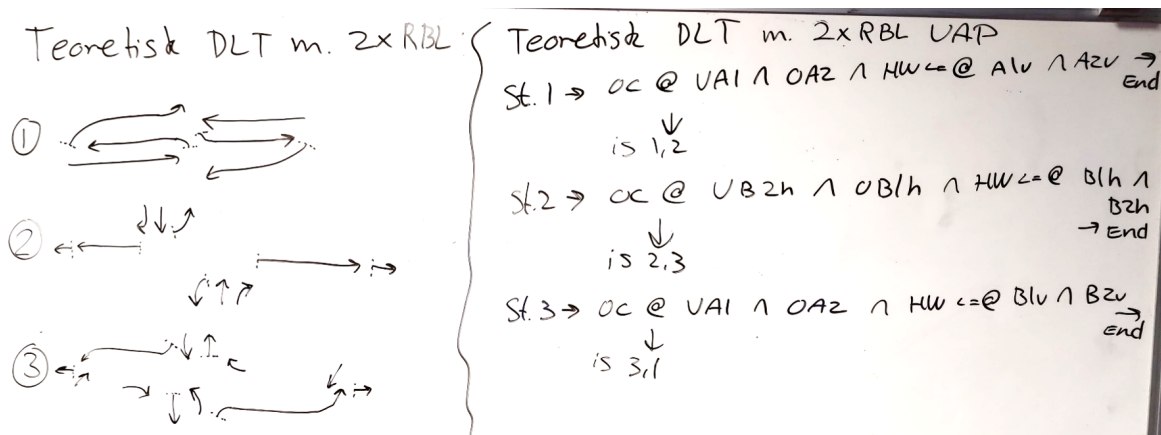 Teoretisk DLT m. 2x RBL
①
②
③
Teoretisk DLT m. 2x RBL VAP
St. 1 → OC @ VA1 ∧ OA2 ∧ HW <= @ A1v ∧ A2v →
End
↓
is 1,2
St. 2 → OC @ VB2h ∧ OB1h ∧ HW <= @ B1h ∧
B2h
→ End
↓
is 2,3
St. 3 → OC @ VA1 ∧ OA2 ∧ HW <= @ B1v ∧ B2v
→
End
↓
is 3,1